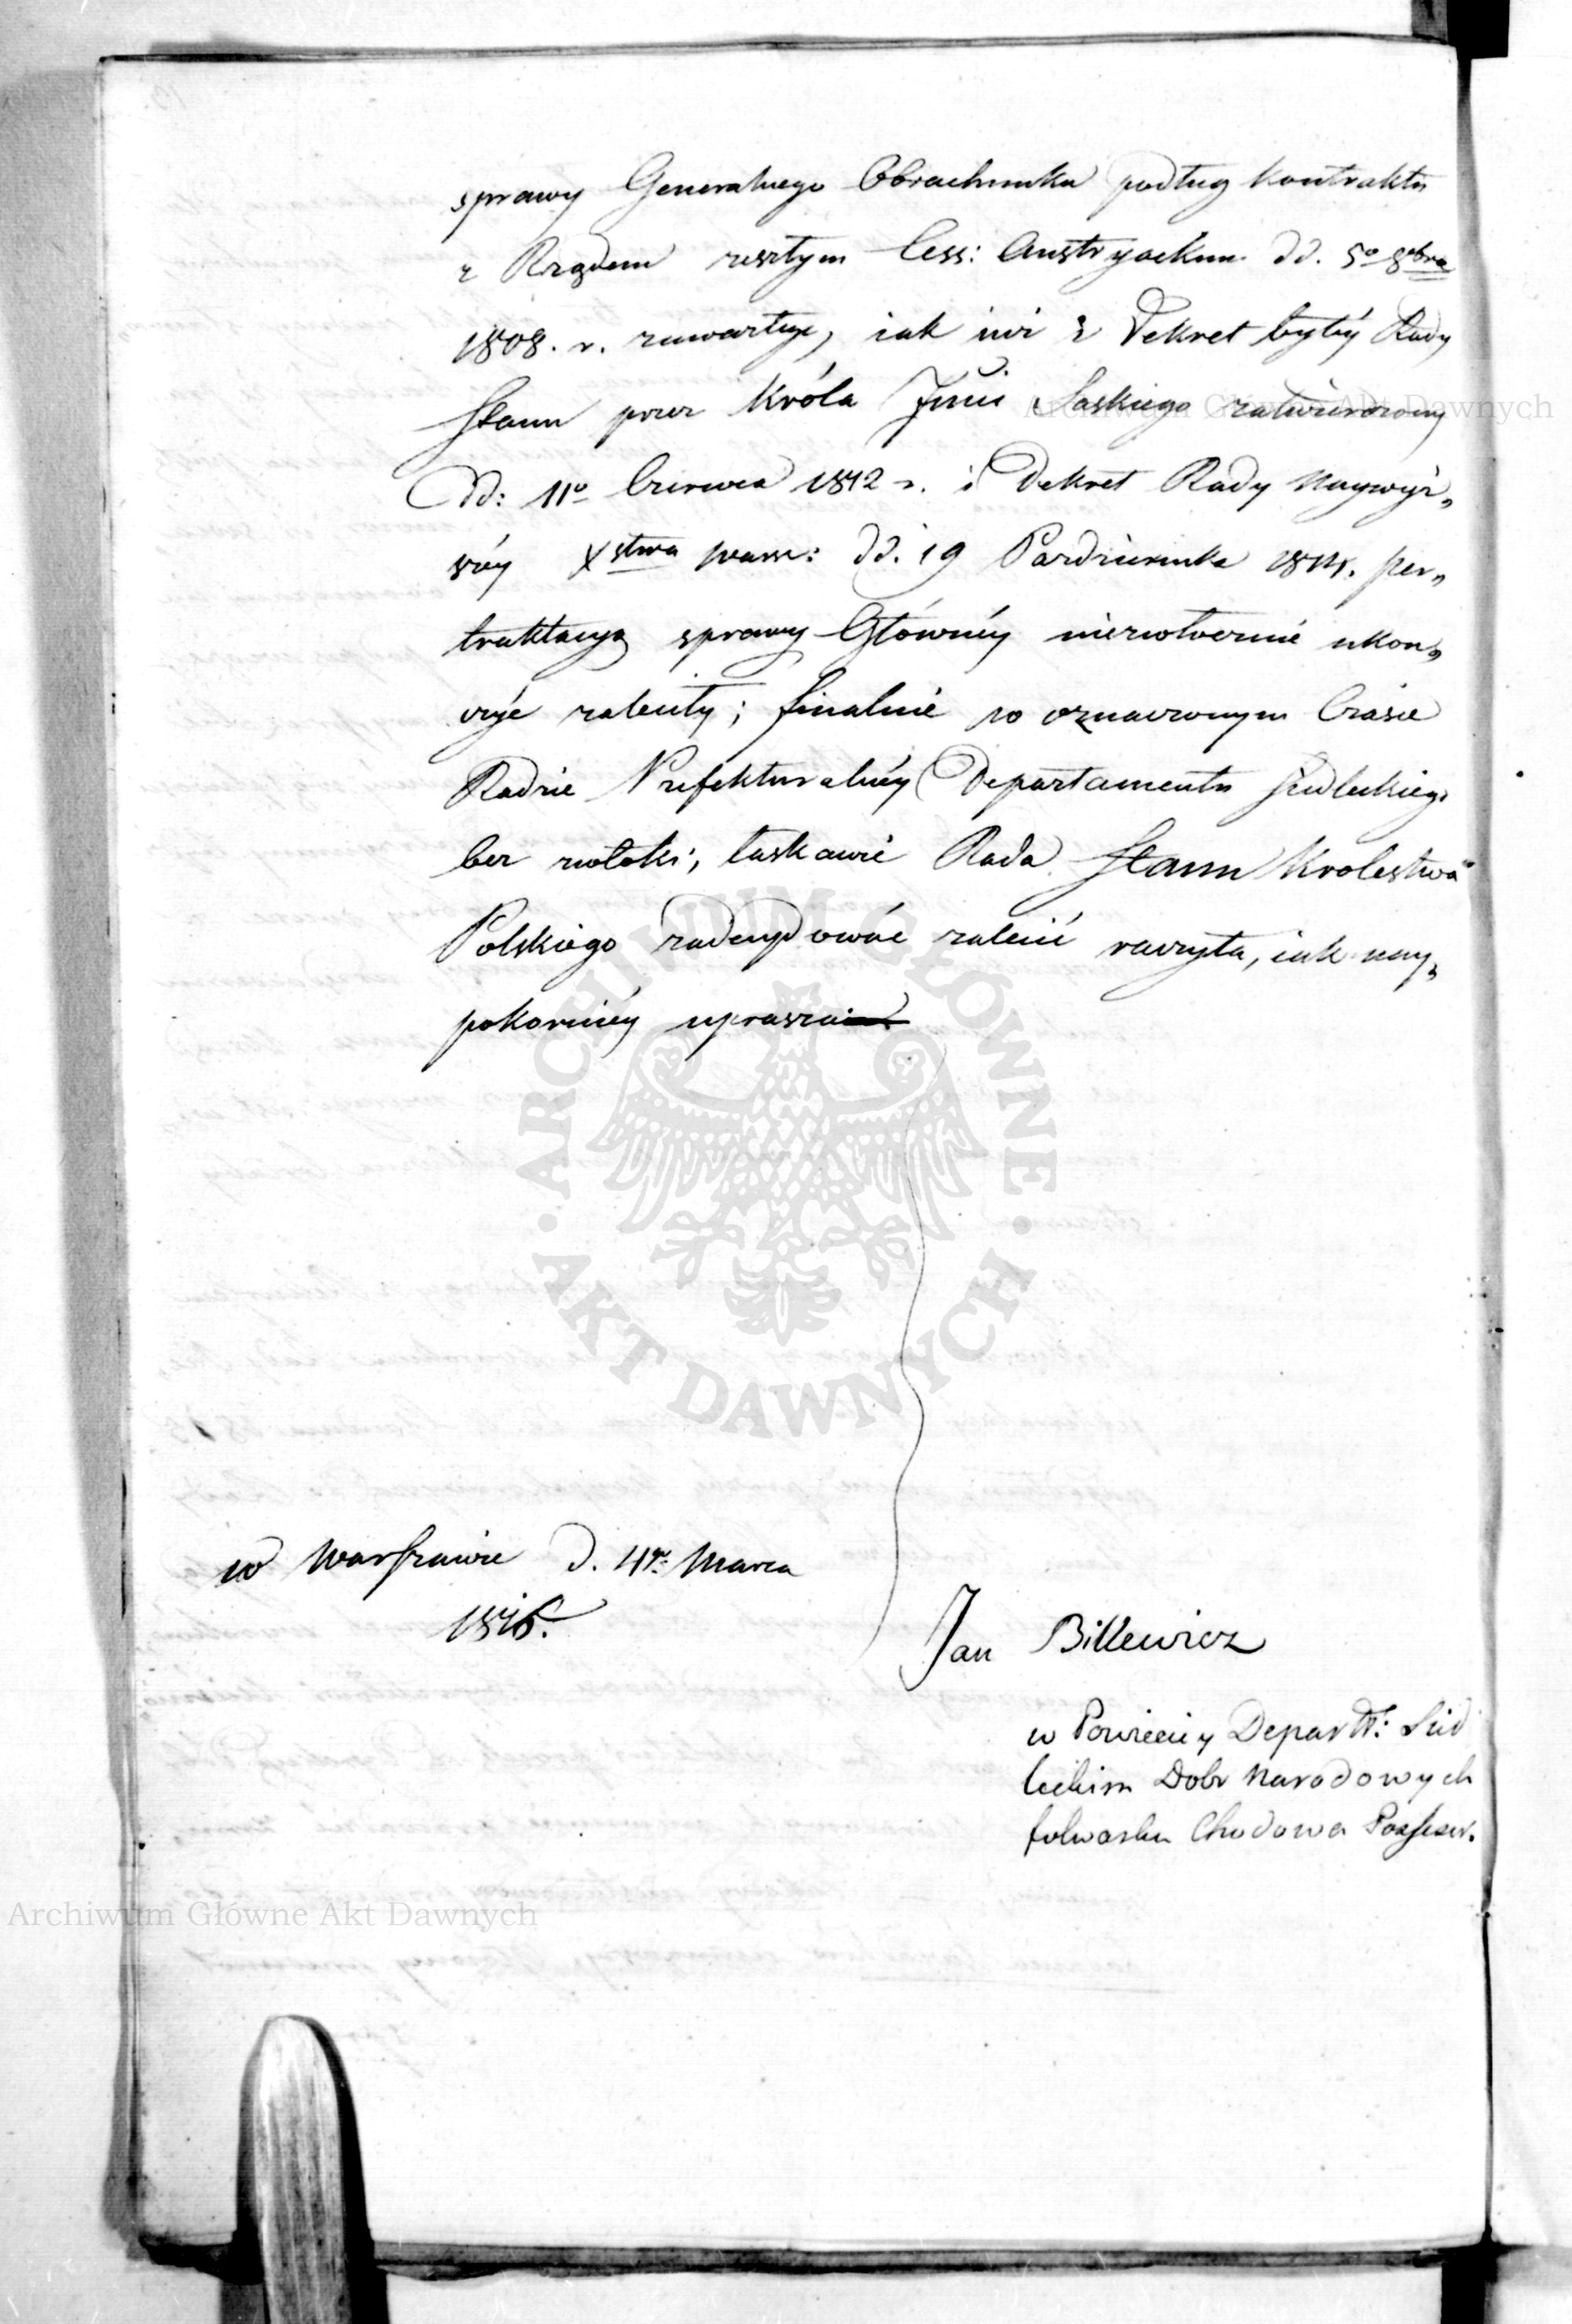 sprawy Generalnego Obrachunku podług Kontraktu
z Rządem zeszłym Cess: Austryackim dd. 5º 8bra
1808. r. zawartego, iak iuż i Dekret byłéy Rady
Stanu przez Króla Jmci Saskiego zatwierdzony
Dd: 11º Czerwca 1812 r. i Dekret Rady Naywyż„
széy Xstwa Warsz: dd. 19 Pazdziernika 1814. per„
traktacyą sprawy Główney niezwłocznie ukoń„
czyć zaleciły; finalnie w oznaczonym Czasie
Radzie Prefekturalnéy Departamentu Siedleckiego
bez zwłoki, łaskawie Rada Stanu Krolestwa
Polskiego zadecydować zalecić raczyła, iak nay„
pokorniéy uprasza
w Warszawie d. 4go Marca
1816.
Jan Billewicz
w Powiecie y Departt: Sied
leckim Dobr Narodowych
folwarku Chodowa Possessor.
Archiwum Główne Akt Dawnych
ARCHIWUM GŁÓWNE · AKT DAWNYCH ·
Archiwum Główne Akt Dawnych